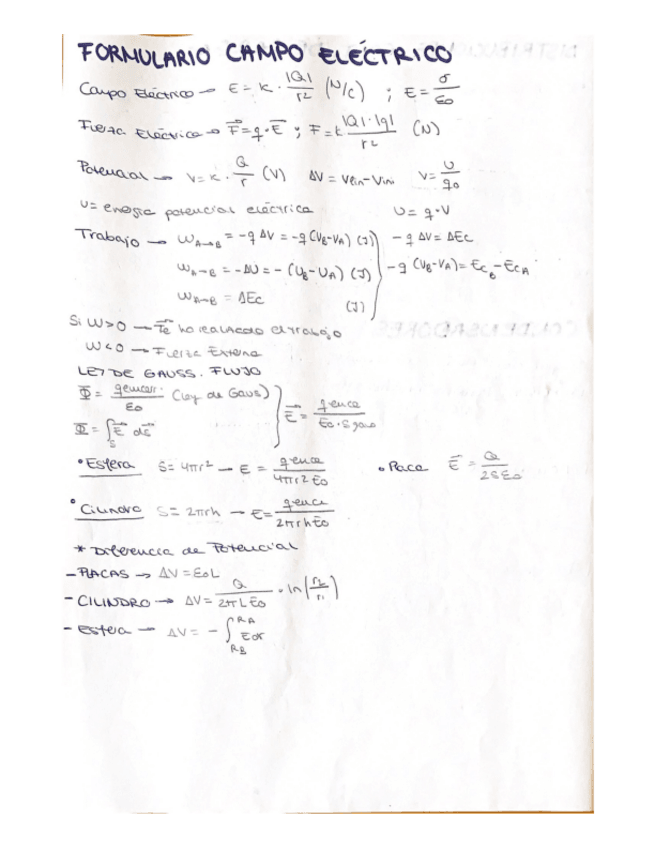 FORMULARIO CAMPO ELÉCTRICO
Campo Eléctrico → E = K · |Q|/r² (N/C) ; E = σ/ε0
Fuerza Eléctrica → F⃗ = q · E⃗ ; F = k |Q|·|q|/r² (N)
Potencial → V = K · Q/r (V) ΔV = Vfin - Vini V = U/q0
U = energía potencial eléctrica U = q · V
Trabajo → W A→B = -q ΔV = -q (VB - VA) (J) - q ΔV = ΔEc
W A→B = - ΔU = - (UB - UA) (J) - q (VB - VA) = EcB - EcA
W A→B = ΔEc (J)
Si W > 0 → Fe ha realizado el trabajo
W < 0 → Fuerza Externa
LEY DE GAUSS. FLUJO
Φ = qencerr./ε0 (ley de Gaus) E⃗ = qence/ε0·Sgaus
Φ = ∫s E⃗ ds⃗
• Esfera S = 4πr² → E = qence/4πr²ε0 • Placa E⃗ = Q/2Sε0
• Cilindro S = 2πrh → E = qence/2πrhε0
* Diferencia de Potencial
- PLACAS → ΔV = E0L
- CILINDRO → ΔV = Q/2πLε0 · ln(r2/r1)
- Esfera → ΔV = - ∫RB RA Edr